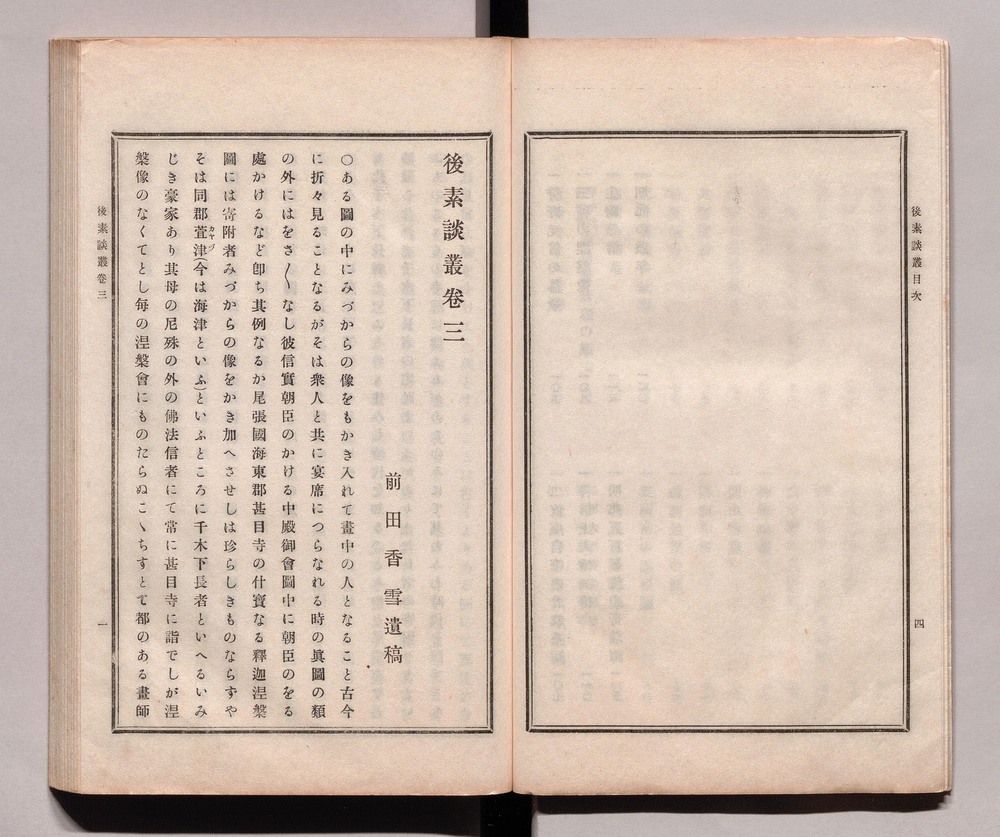 後素談叢目次
四
後素談叢卷三
前田香雪遺稿
○ある圖の中にみづからの像をもかき入れて畫中の人となること古今
に折々見ることなるがそは衆人と共に宴席につらなれる時の眞圖の類
の外にはをさ〳〵なし彼信實朝臣のかける中殿御會圖中に朝臣のをる
處かけるなど卽ち其例なるか尾張國海東郡甚目寺の什寶なる釋迦涅槃
圖には寄附者みづからの像をかき加へさせしは珍らしきものならずや
そは同郡萱津カヤヅ(今は海津といふ)といふところに千木下長者といへるいみ
じき豪家あり其母の尼殊の外の佛法信者にて常に甚目寺に詣でしが涅
槃像のなくてとし毎の涅槃會にものたらぬこゝちすとて都のある畫師
後素談叢卷三
一